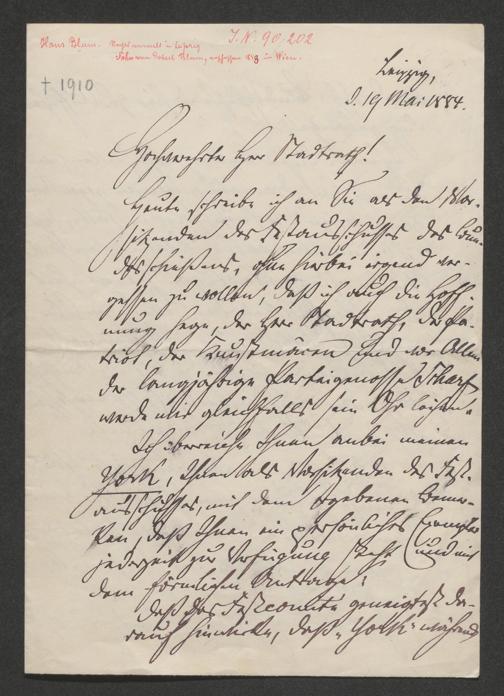 Hans Blum. Rechtsanwalt in Leipzig
Sohn von Robert Blum, erschossen 1848 in Wien.
I. N. 90.202
† 1910
Leipzig,
d. 19 Mai 1884.
Hochverehrter Herr Stadtrath!
Heute schreibe ich an Sie als den Vor-
sitzenden des Festausschusses des Bun-
desschießens, ohne hierbei irgend ver-
gessen zu wollen, daß ich auch die Hoff-
nung hege, der Herr Stadtrath, der Pa-
triot, der Kunstmäcen und vor Allem
der langjährige Parteigenosse Scharf
werde mir gleichfalls sein Ohr leihen.
Ich überreiche Ihnen anbei meinen
York, Ihnen als Vorsitzenden des Fest-
ausschusses, mit dem ergebenen Bemer-
ken, daß Ihnen ein persönliches Exemplar
jederzeit zur Verfügung steht und mit
dem förmlichen Antrage:
daß das Festcomité geneigtest da-
rauf hinwirke, daß „York“ während